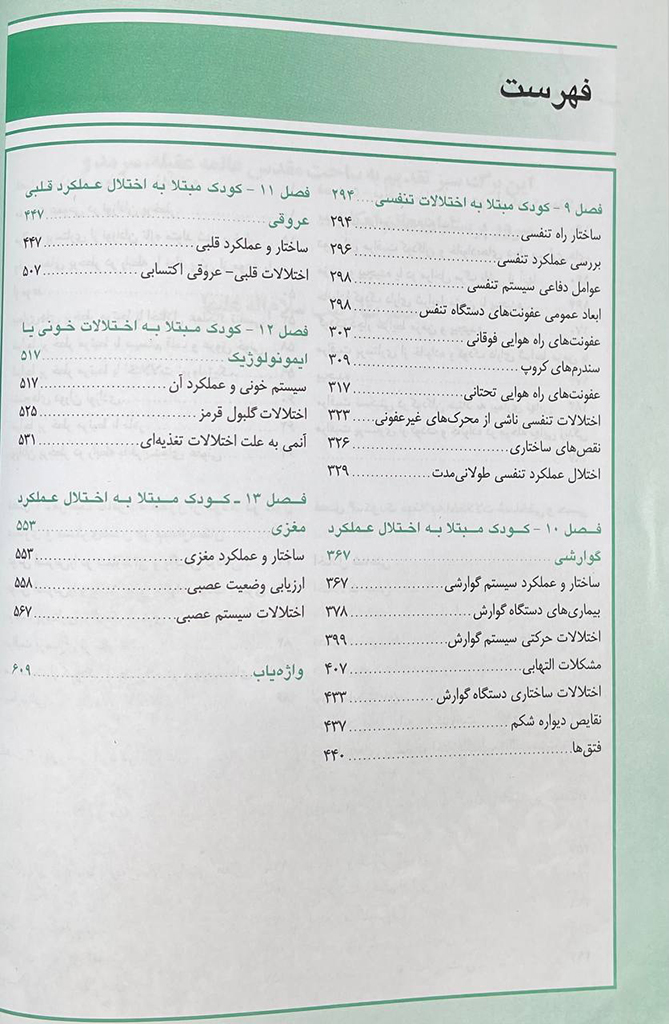 فهرست
فصل ۹ - کودک مبتلا به اختلالات تنفسی .... ۲۹۴
ساختار راه تنفسی .... ۲۹۴
بررسی عملکرد تنفسی .... ۲۹۶
عوامل دفاعی سیستم تنفسی .... ۲۹۸
ابعاد عمومی عفونت‌های دستگاه تنفس .... ۲۹۸
عفونت‌های راه هوایی فوقانی .... ۳۰۳
سندرم‌های کروپ .... ۳۰۹
عفونت‌های راه هوایی تحتانی .... ۳۱۷
اختلالات تنفسی ناشی از محرک‌های غیرعفونی .... ۳۲۳
نقص‌های ساختاری .... ۳۲۶
اختلال عملکرد تنفسی طولانی‌مدت .... ۳۲۹
فصل ۱۰ - کودک مبتلا به اختلال عملکرد
گوارشی .... ۳۶۷
ساختار و عملکرد سیستم گوارشی .... ۳۶۷
بیماری‌های دستگاه گوارش .... ۳۷۸
اختلالات حرکتی سیستم گوارش .... ۳۹۹
مشکلات التهابی .... ۴۰۷
اختلالات ساختاری دستگاه گوارش .... ۴۳۳
نقایص دیواره شکم .... ۴۳۷
فتق‌ها .... ۴۴۰
فصل ۱۱ - کودک مبتلا به اختلال عملکرد قلبی
عروقی .... ۴۴۷
ساختار و عملکرد قلبی .... ۴۴۷
اختلالات قلبی - عروقی اکتسابی .... ۵۰۷
فصل ۱۲ - کودک مبتلا به اختلالات خونی یا
ایمونولوژیک .... ۵۱۷
سیستم خونی و عملکرد آن .... ۵۱۷
اختلالات گلبول قرمز .... ۵۲۵
آنمی به علت اختلالات تغذیه‌ای .... ۵۳۱
فصل ۱۳ - کودک مبتلا به اختلال عملکرد
مغزی .... ۵۵۳
ساختار و عملکرد مغزی .... ۵۵۳
ارزیابی وضعیت عصبی .... ۵۵۸
اختلالات سیستم عصبی .... ۵۶۷
واژه‌یاب .... ۶۰۹